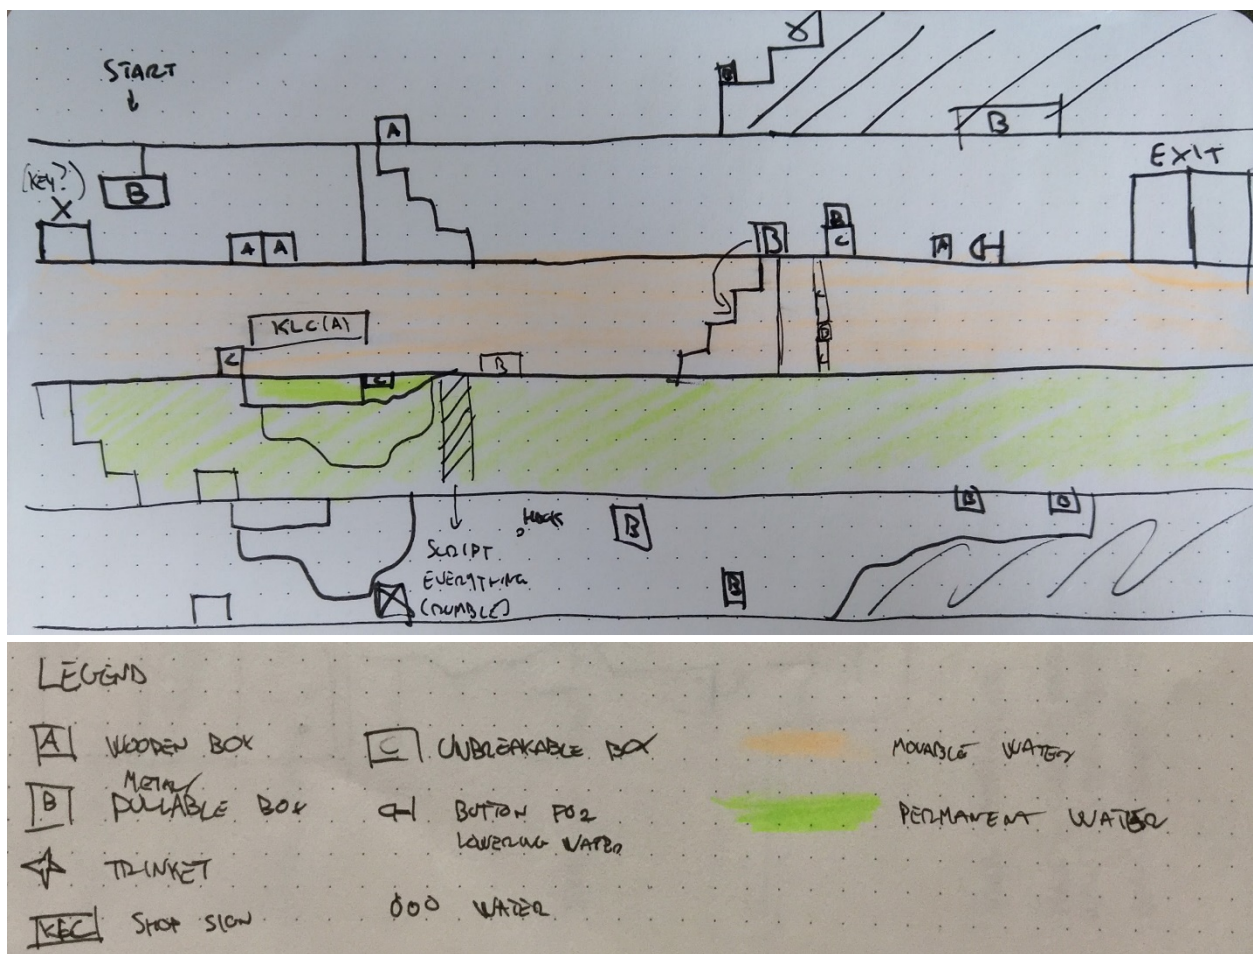 START
A
B
EXIT
(KEY?)
X
B
A A
B
B
C
A
KLC(A)
C
C
B
B
B
B
B
SCRIPT
EVERYTHING
(RUMBLE)
LEGEND
A WOODEN BOX
METAL/
B PULLABLE BOX
TRINKET
KLC SHOP SIGN
C UNBREAKABLE BOX
BUTTON FOR
LOWERING WATER
WATER
MOVABLE WATER
PERMANENT WATER